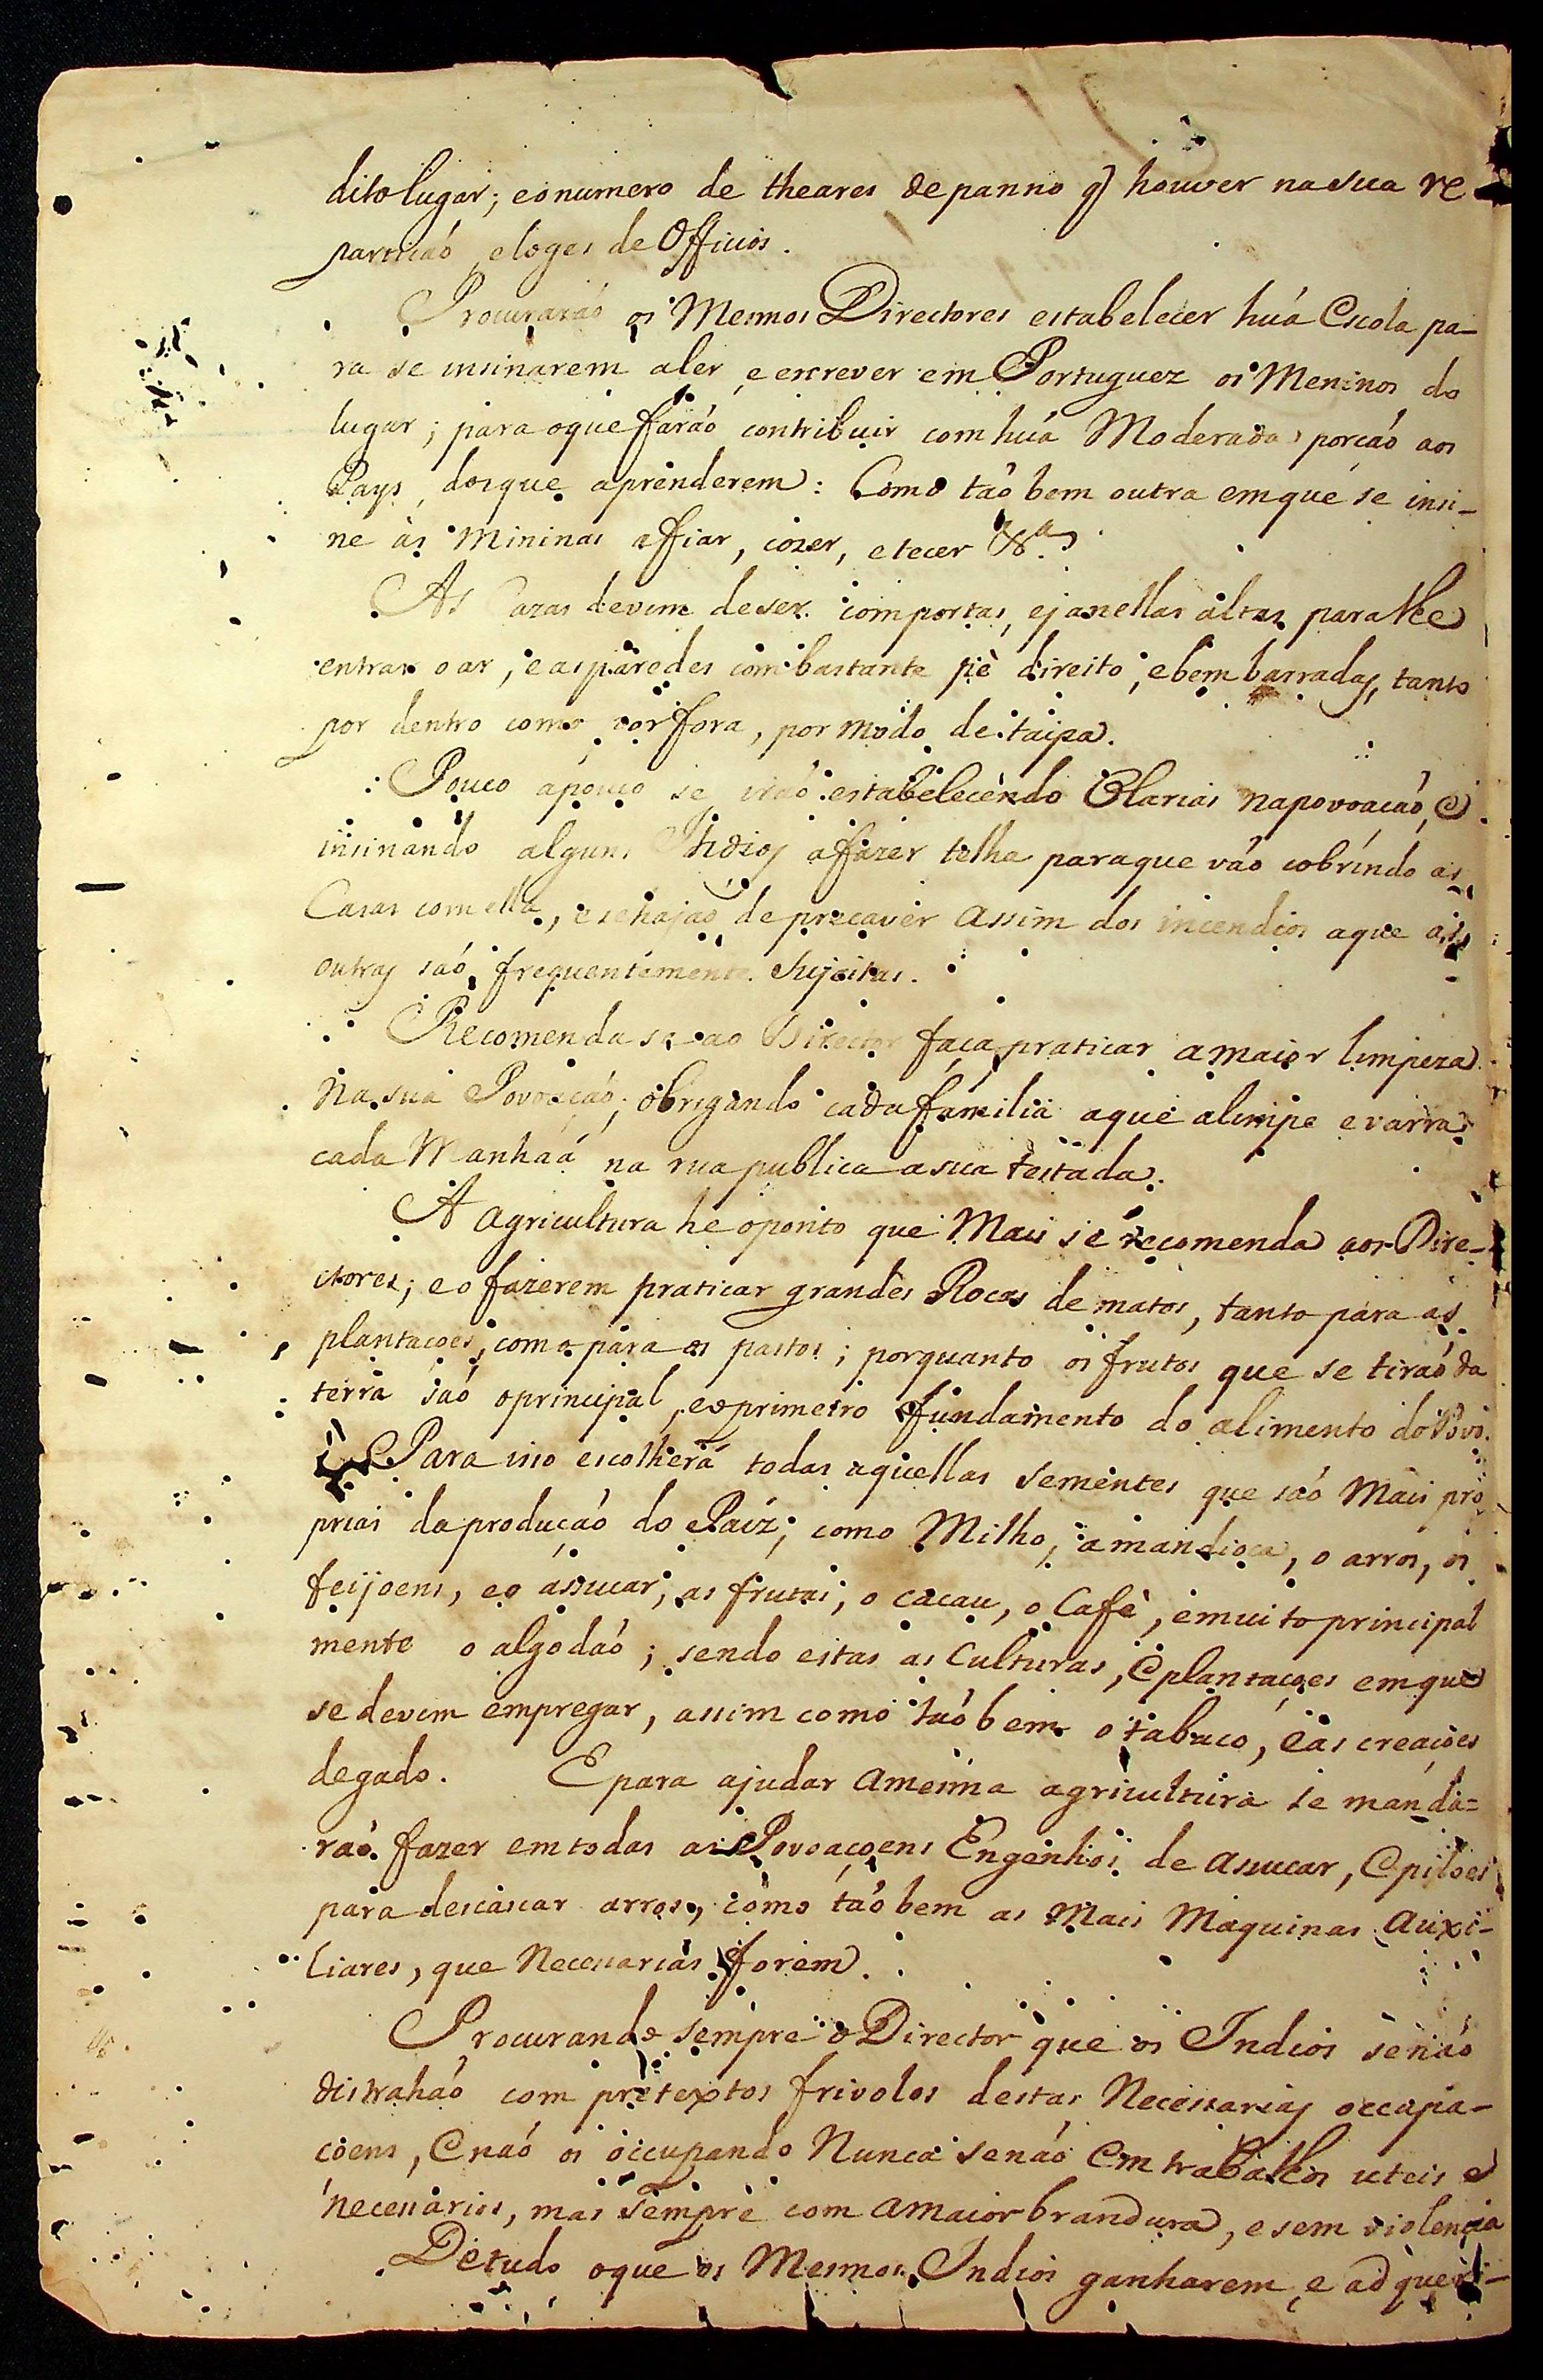 dito lugar; e o numero de theares de panno q̃ houver na sua re
partiçaõ, e loges de Officios.
Procuraráõ os Mesmos Directores estabelecer húa Escola pa-
ra se insinarem a ler, e escrever em Portuguez os Meninos do
lugar; para o que faráõ contribuir com húa Moderada porcáo aos
Pays, dos que aprenderem: Como taõ bem outra em que se insi-
ne às Mininas a ffiar, cozer, e tecer &.ª
As Cazas devem de ser com portas, e janellas altas para lhe
entrar o ar, e as paredes com bastante pè direito, e bem barradas, tanto
por dentro como por fora, por modo de taipa.
Pouco a pouco se iráõ estabelecendo Olarias na povoacáo, e
insinando alguns Indios a fazer telha para que váo cobrindo as
Casas com ella, e se hajaó de precaver assim dos incendios a que as
outras saó frequentemente Sujeitas.
Recomenda se ao Director faça praticar a maior limpeza
Na sua Povoacáo; obrigando cada familia a que alimpe e varra
cada Manhaá na rua publica a sua testada.
A Agricultura he o ponto que Mais se recomenda aos Dire-
ctores; e o fazerem praticar grandes Rocas de matos, tanto para as
plantacoes, como para os pastos; porquanto os frutos que se tiraó da
terra saó o principal, e o primeiro fundamento do alimento do Povo.
Para isso escolherá todas aquellas sementes que saó Mais pro
prias da produçaó do Paiz; como Milho, a mandioca, o arros, os
feijoens, e o assucar, as frutas, o cacau, o Cafè, e muito principal
mente o algodaó; sendo estas as Culturas, e plantacoes em que
se devem empregar, assim como taó bem o tabaco, e as creaçoes
de gado. E para ajudar a mesma agricultura se manda=
raó fazer em todas as Povoaçoens Engenhos de assucar, e piloes
para descascar arros, como taó bem as Mais Maquinas Auxi-
liares, que Necessarias forem.
Procurando sempre o Director que os Indios se náo
distrahaó com pretextos frivolos destas Necessarias occupa-
coens, e naó os occupando Nunca senaó em trabalhos uteis e
necessarios, mas sempre com a maior brandura, e sem violencia
De tudo o que os Mesmos Indios ganharem, e adqueri-